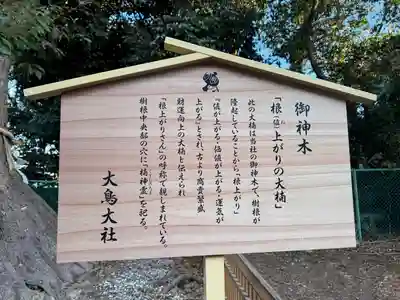 御神木
「根(値)上がりの大楠」
此の大楠は当社の御神木で、樹根が
隆起していることから「根上がり」
『値が上がる・価値が上がる・運気が
上がる』とされ、古より商売繁盛
財運向上の大楠と伝えられ
「根上がりさん」の呼称で親しまれている。
樹根中央部の穴に「楠神霊」を祀る。
大鳥大社